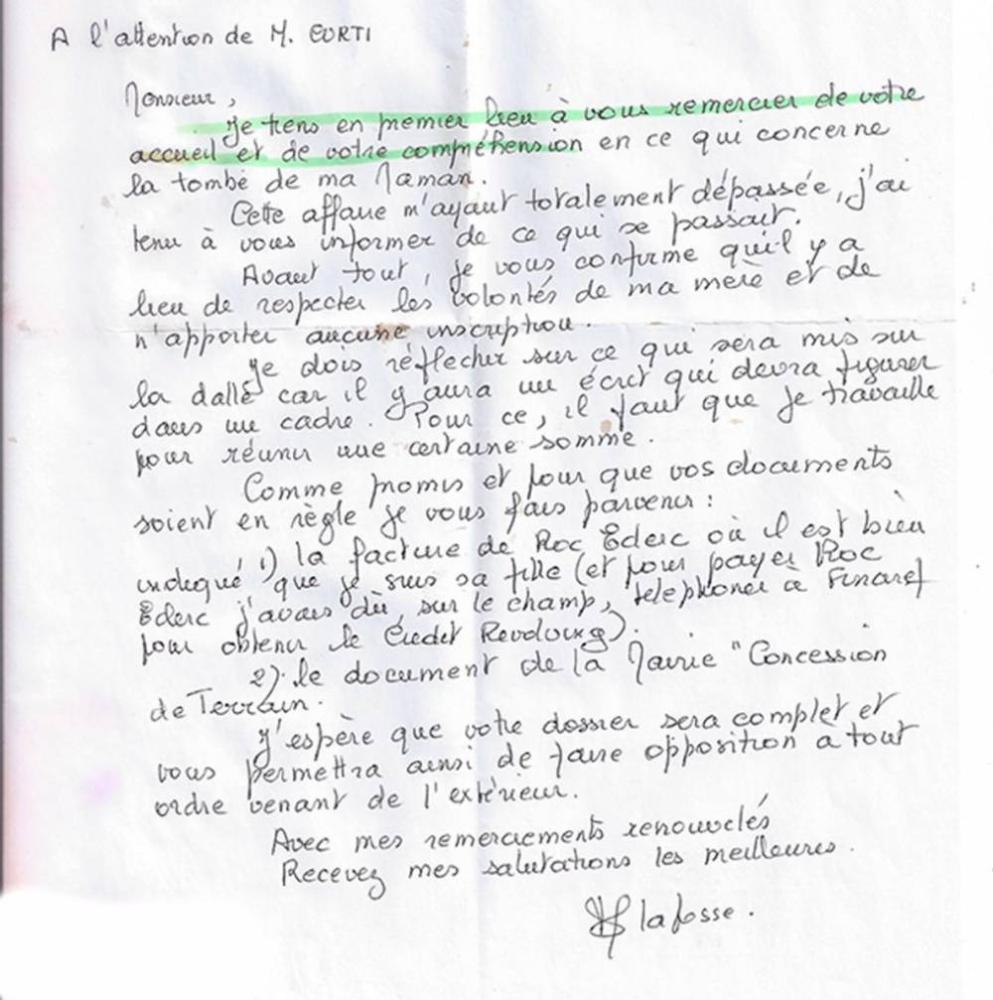 A l'attention de M. CURTI
Monsieur,
Je tiens en premier lieu à vous remercier de votre
accueil et de votre compréhension en ce qui concerne
la tombe de ma Maman.
Cette affaire m'ayant totalement dépassée, j'ai
tenu à vous informer de ce qui se passait.
Avant tout, je vous confirme qu'il y a
lieu de respecter les volontés de ma mère et de
n'apporter aucune inscription.
Je dois réflechir sur ce qui sera mis sur
la dalle car il y aura un écrit qui devra figurer
dans un cadre. Pour ce, il faut que je travaille
pour réunir une certaine somme.
Comme promis et pour que vos documents
soient en règle je vous fais parvenir :
1) la facture de Roc Eclerc où il est bien
indiqué que je suis sa fille (et pour payer Roc
Eclerc j'avais dû, sur le champ, telephoner à Finaref
pour obtenir le Credit Revolving).
2) le document de la Mairie "Concession
de Terrain.
J'espère que votre dossier sera complet et
vous permettra ainsi de faire opposition à tout
ordre venant de l'extérieur.
Avec mes remerciements renouvelés
Recevez mes salutations les meilleures.
lafosse.